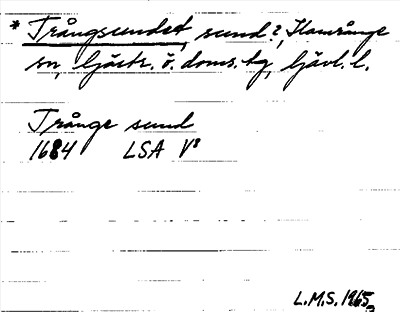 * Trångsundet, sund?, Hamrånge
sn, Gästr. ö. doms. tg, Gävl. l.
Trånge sund
1684 LSA V⁸
L.M.S. 1965